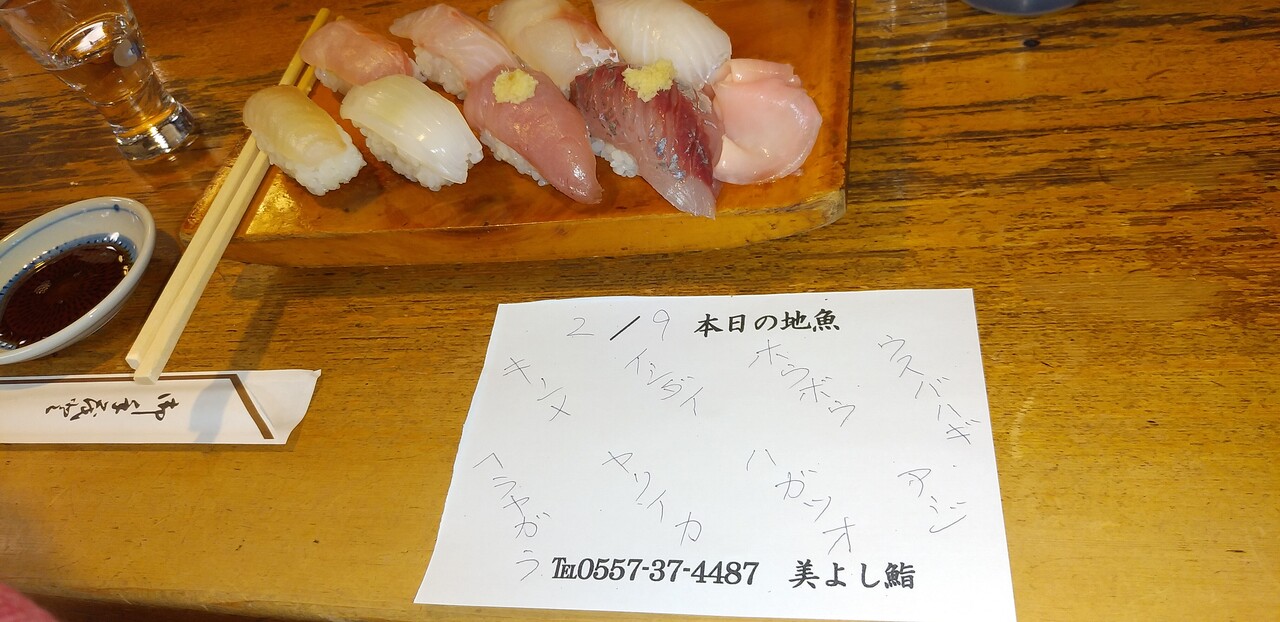 2/9 本日の地魚
キンメ
イシダイ
ホウボウ
ウスバハギ
ヘラヤガラ
ヤリイカ
ハガツオ
アジ
TEL0557-37-4487 美よし鮨